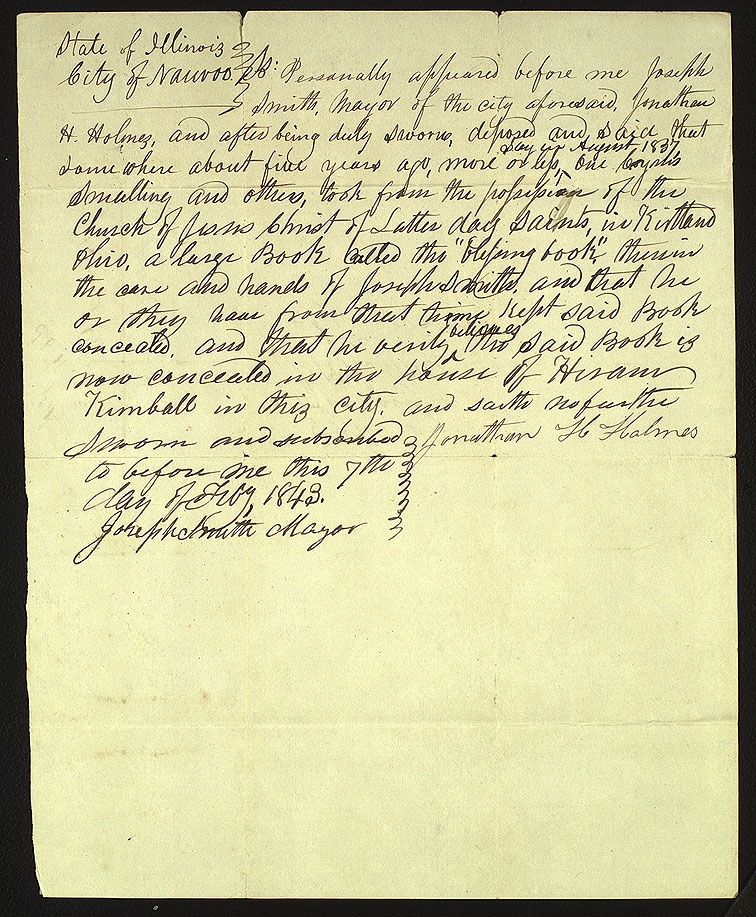 State of Illinois
City of Nauvoo Ss: Personally appeared before me Joseph
Smith, Mayor of the city aforesaid, Jonathan
H. Holmes, and after being duly sworn, deposed and said that
some where about five years ago, more or less, say in August 1837, one Cyrus
Smalling and others, took from the possession of the
Church of Jesus Christ of Latter day Saints, in Kirtland
Ohio, a large Book called the "blessing book", then in
the care and hands of Joseph Smith, and that he
or they have from that time kept said Book
concealed, and that he verily believes the said Book is
now concealed in the house of Hiram
Kimball in this city. and saith no further
Sworn and subscribed Jonathan H Holmes
to before me this 7th
day of Feby, 1843.
Joseph Smith Mayor